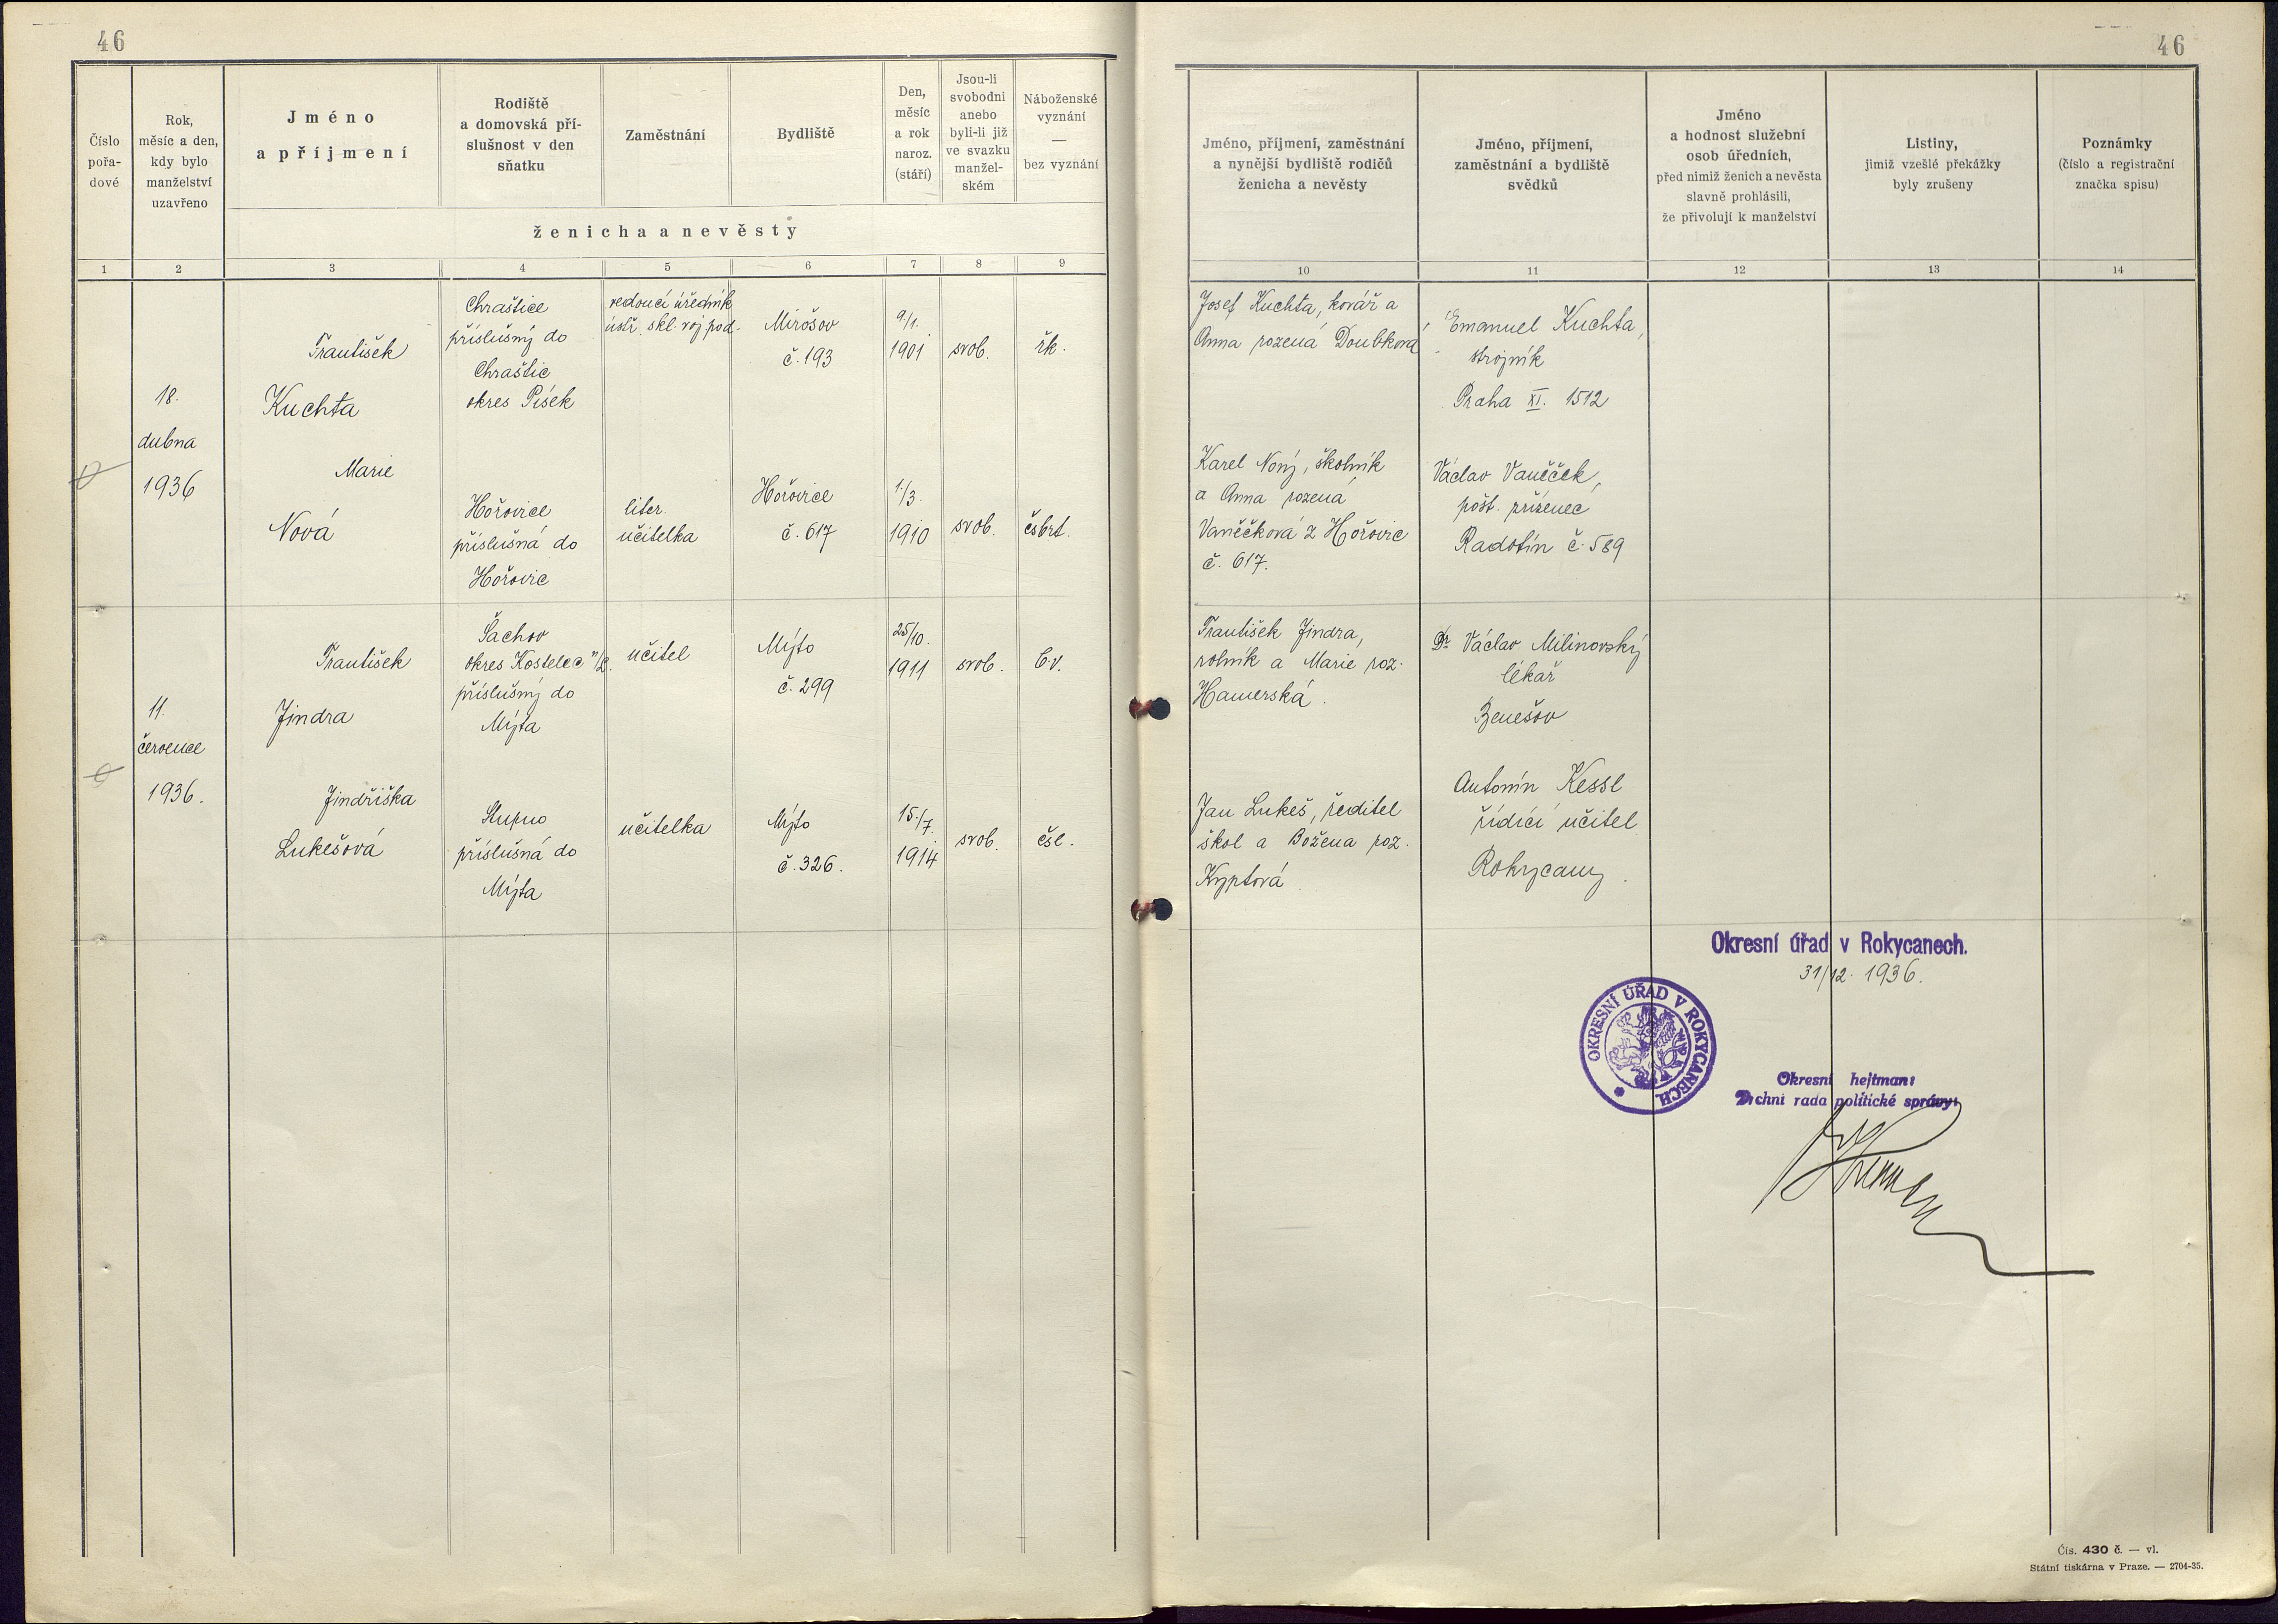 46
46
Číslo
pořa-
dové
Rok,
měsíc a den,
kdy bylo
manželství
uzavřeno
Jméno
a příjmení
Rodiště
a domovská pří-
slušnost v den
sňatku
Zaměstnání
Bydliště
Den,
měsíc
a rok
naroz.
(stáří)
Jsou-li
svobodni
anebo
byli-li již
ve svazku
manžel-
ském
Náboženské
vyznání
—
bez vyznání
ženicha a nevěsty
Jméno, příjmení, zaměstnání
a nynější bydliště rodičů
ženicha a nevěsty
Jméno, příjmení,
zaměstnání a bydliště
svědků
Jméno
a hodnost služební
osob úředních,
před nimiž ženich a nevěsta
slavně prohlásili,
že přivolují k manželství
Listiny,
jimiž vzešlé překážky
byly zrušeny
Poznámky
(číslo a registrační
značka spisu)
1 2 3 4 5 6 7 8 9 10 11 12 13 14
18.
dubna
1936
František
Kuchta
Chraštice
příslušný do
Chraštic
okres Písek
vedoucí úředník
ústř. skl. voj pod.
Mirošov
č. 193
9/1.
1901
svob.
řk.
Josef Kuchta, kovář a
Anna rozená Doubková
Emanuel Kuchta,
strojník
Praha XI. 1512
Marie
Nová
Hořovice
příslušná do
Hořovic
liter.
učitelka
Hořovice
č. 617
1/3.
1910
svob.
čsbrt.
Karel Nový, školník
a Anna rozená
Vaněčková z Hořovic
č. 617.
Václav Vaněček,
pošt. zřízenec
Radotín č. 589
11.
července
1936.
František
Jindra
Šachov
okres Kostelec n/
příslušný do
Mýta
učitel
Mýto
č. 299
25/10.
1911
svob.
b.v.
František Jindra,
rolník a Marie roz.
Hamerská.
Dr Václav Milinovský
lékař
Benešov
Jindřiška
Lukešová
Stupno
příslušná do
Mýta
učitelka
Mýto
č. 326.
15./7.
1914
svob.
čsl.
Jan Lukeš, ředitel
škol a Božena roz.
Kyptová.
Antonín Kessl
řídící učitel
Rokycany.
Okresní úřad v Rokycanech.
31/12. 1936.
OKRESNÍ ÚŘAD V ROKYCANECH.
Okresní hejtman:
Vrchní rada politické správy:
Čís. 430 č. — vl.
Státní tiskárna v Praze. — 2704-35.